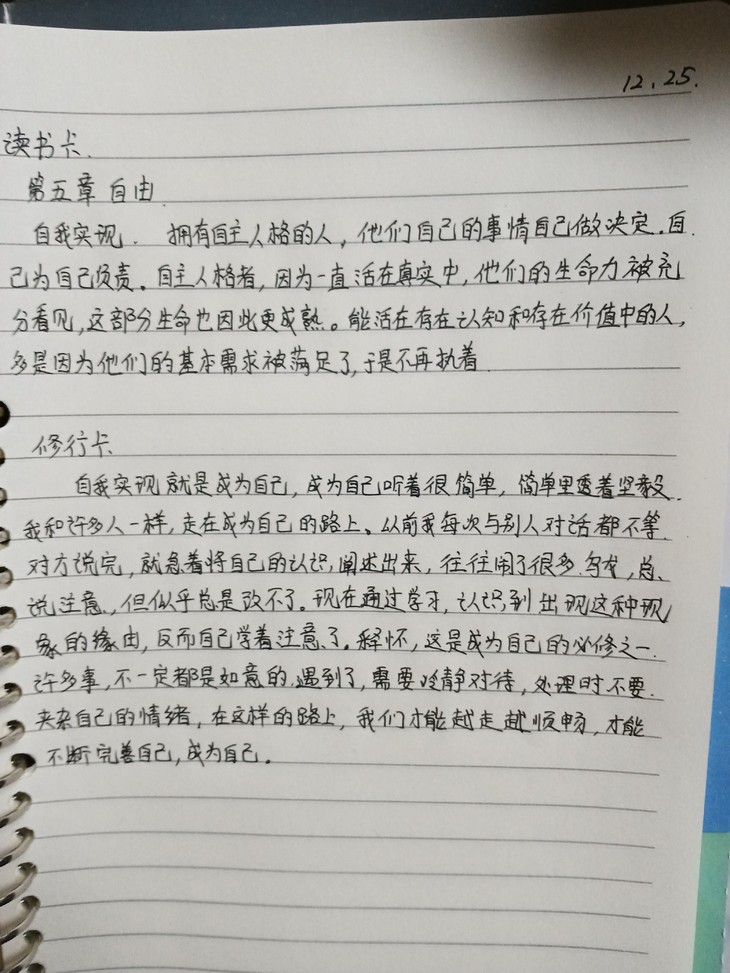 12.25.
读书卡.
第五章 自由.
自我实现. 拥有自主人格的人，他们自己的事情自己做决定.自
己为自己负责。自主人格者，因为一直活在真实中，他们的生命力被充
分看见，这部分生命也因此更成熟。能活在存在认知和存在价值中的人，
多是因为他们的基本需求被满足了,于是不再执着.
修行卡
自我实现就是成为自己，成为自己听着很简单，简单里透着坚毅.
我和许多人一样，走在成为自己的路上、从前我每次与别人对话都不等
对方说完，就急着将自己的认识,阐述出来，往往闹了很多乌龙，总、
说注意，但似乎总是改不了。现在通过学习，认识到出现这种现
象的缘由，反而自己学着注意了。释怀，这是成为自己的必修之一.
许多事，不一定都是如意的.遇到了，需要冷静对待，处理时不要
夹杂自己的情绪，在这样的路上，我们才能越走越顺畅，才能
不断完善自己，成为自己。